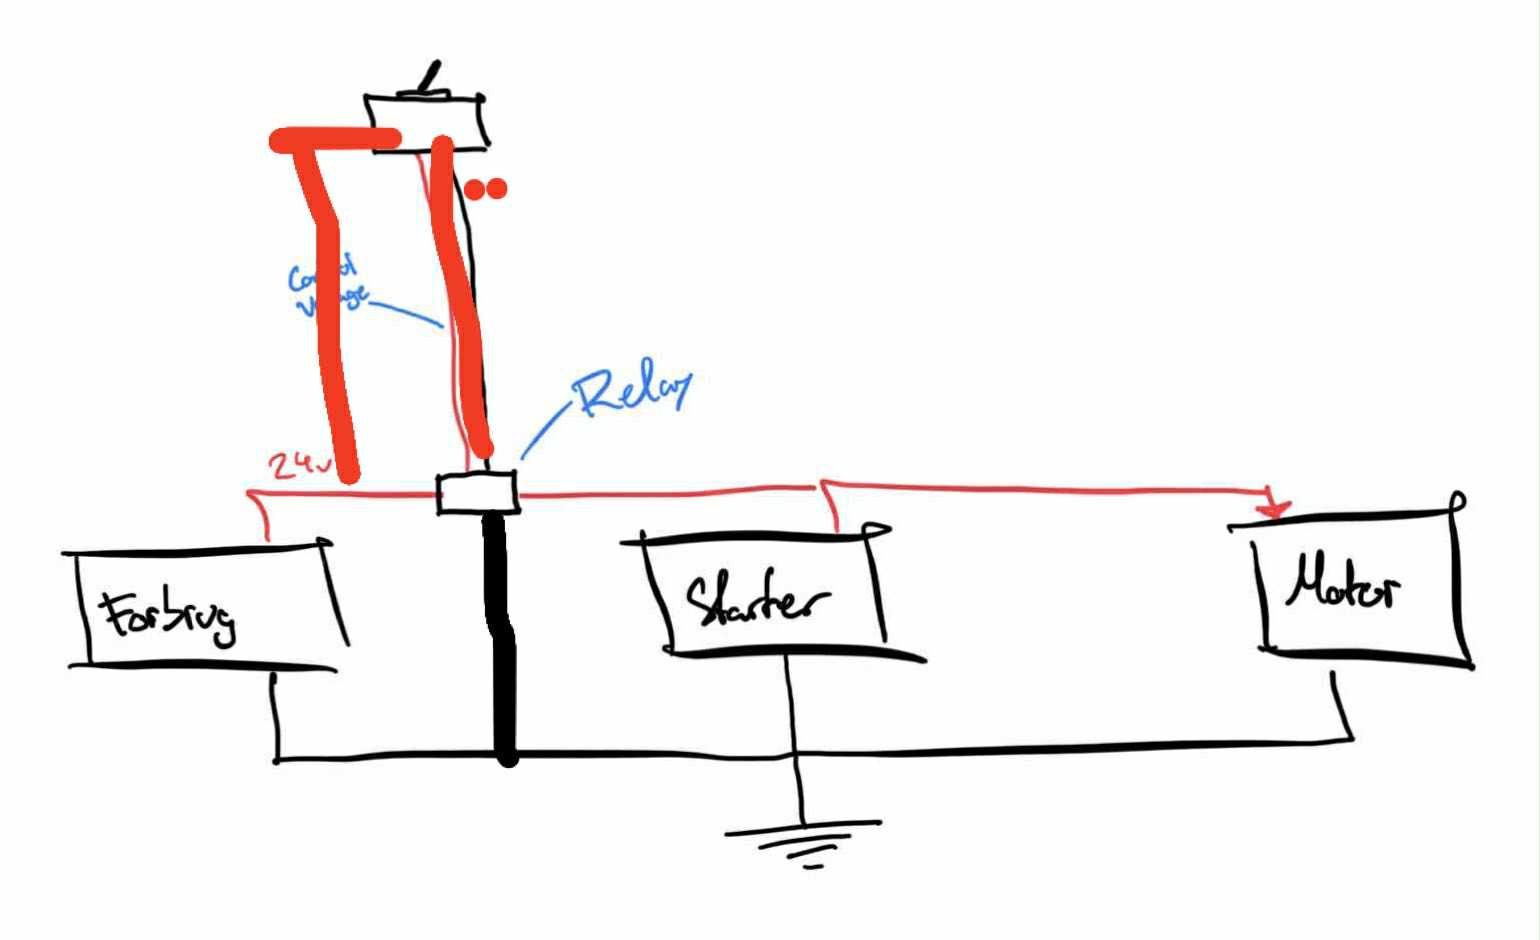 Control
Voltage
Relay
24v
Forbrug
Starter
Motor